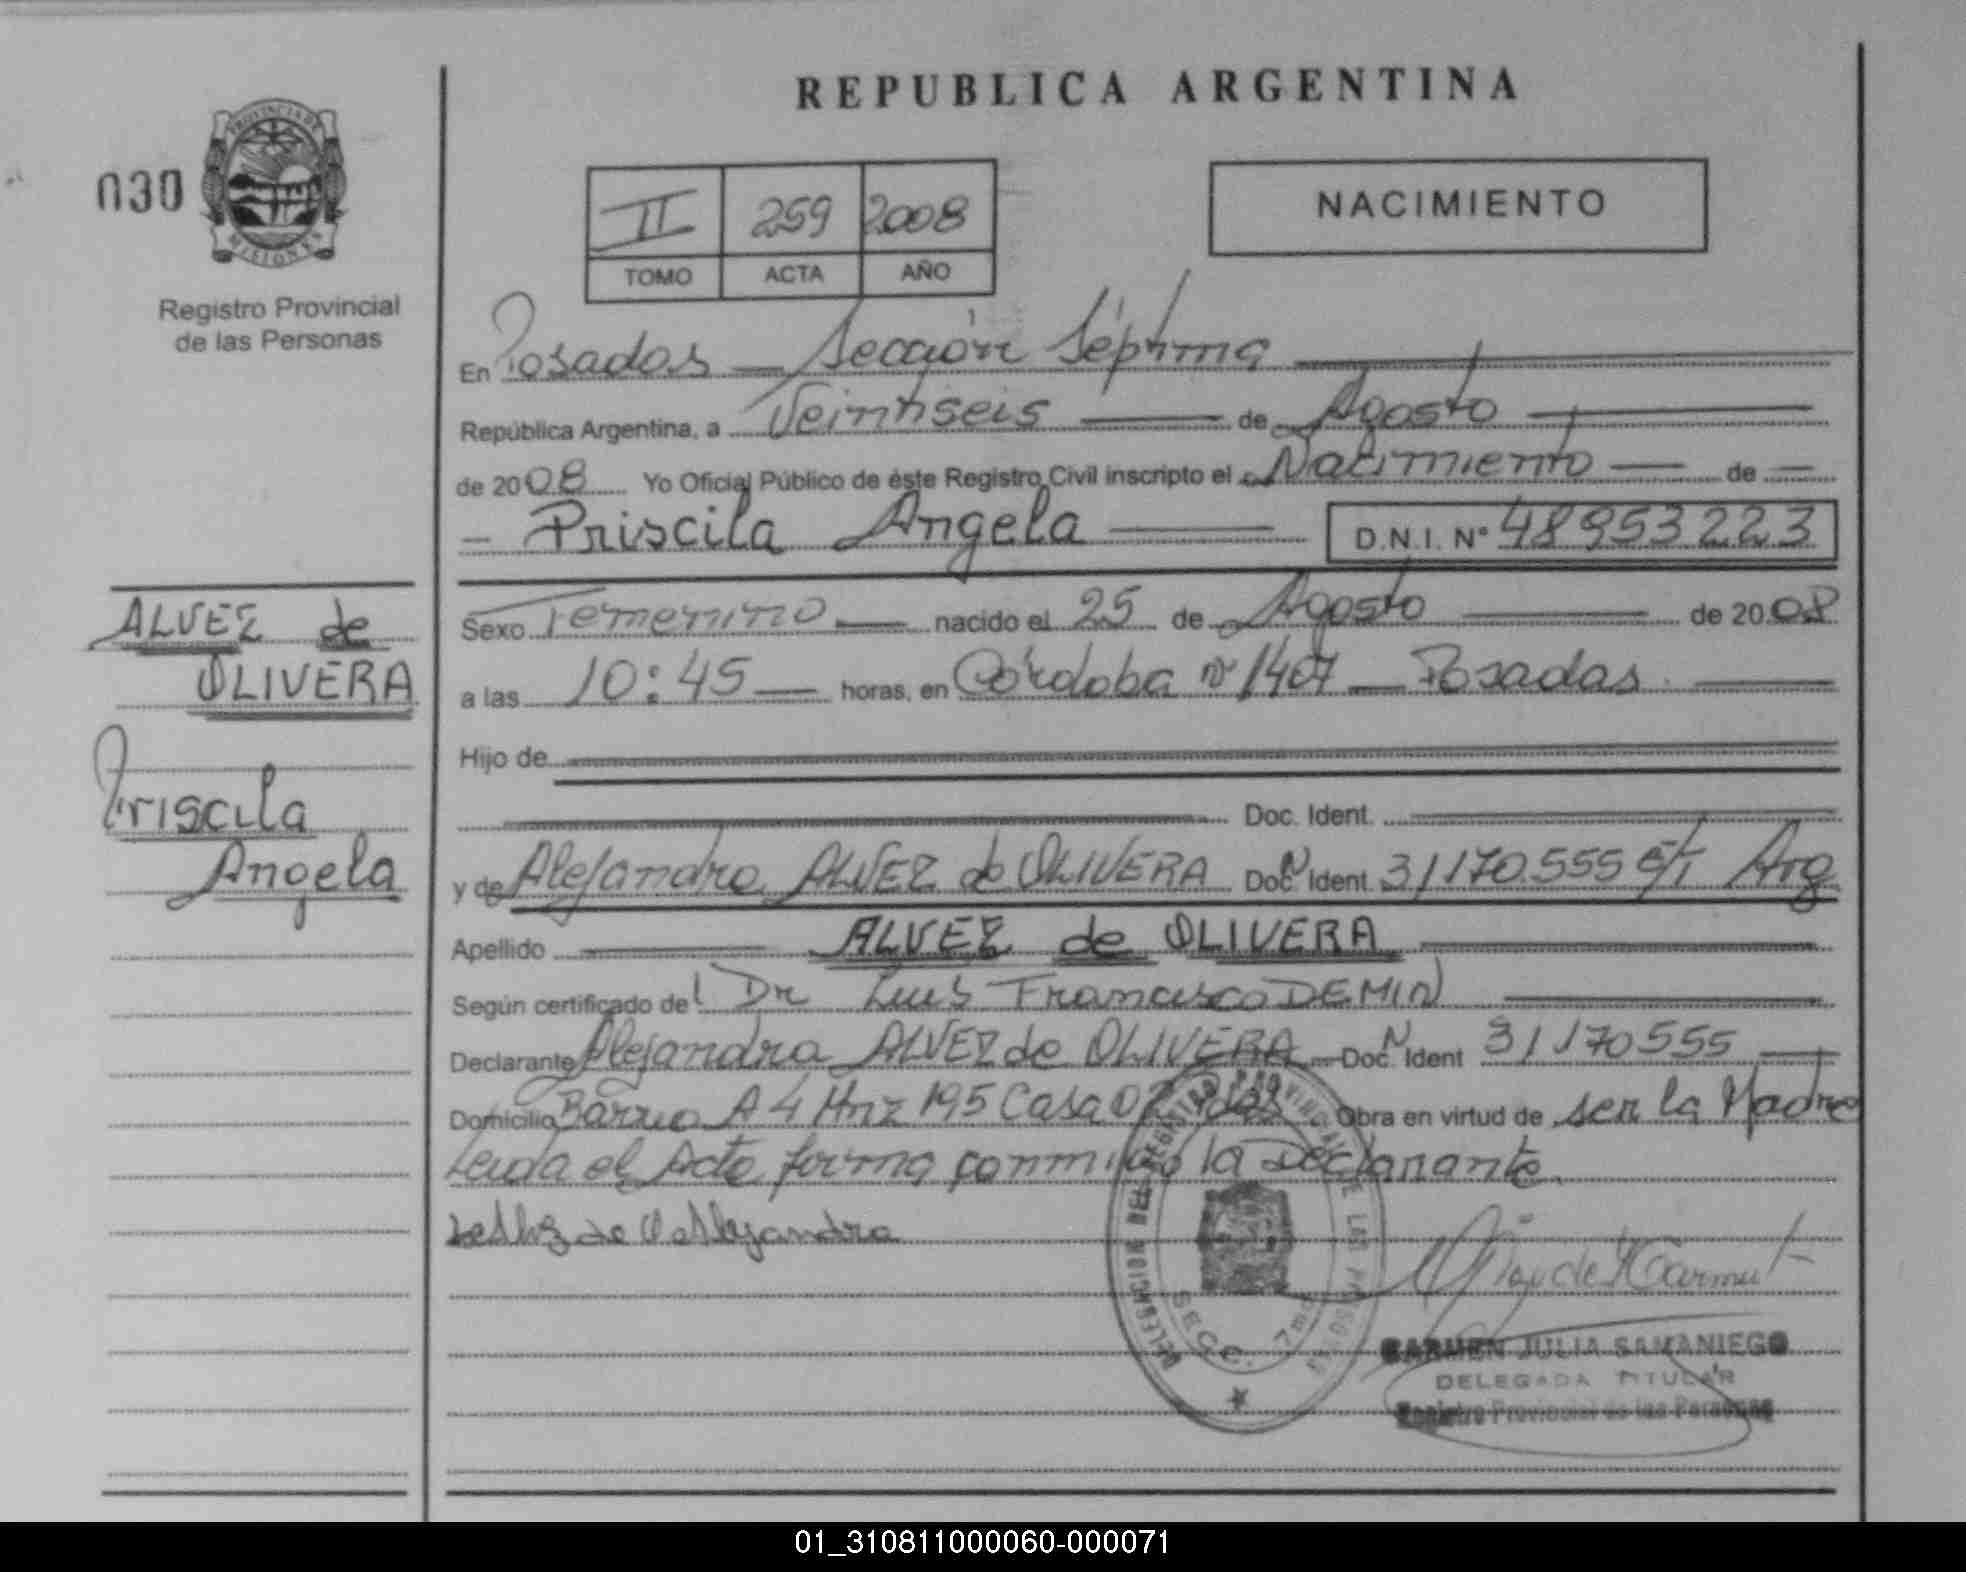 REPUBLICA ARGENTINA
030
PROVINCIA DE
MISIONES
Registro Provincial
de las Personas
II 259 2008
TOMO ACTA AÑO
NACIMIENTO
En Posadas — Sección Séptima
República Argentina, a Veintiseis — de Agosto
de 2008 Yo Oficial Público de éste Registro Civil inscripto el Nacimiento — de —
— Priscila Angela — D.N.I. Nº 48953223
ALVEZ de
OLIVERA
Priscila
Angela
Sexo Femenino — nacido el 25 de Agosto — de 2008
a las 10:45 — horas, en Córdoba Nº 1407 — Posadas. —
Hijo de
Doc. Ident.
y de Alejandra ALVEZ de OLIVERA Doc. Ident 31170.555 Arg
Apellido — ALVEZ de OLIVERA
Según certificado del Dr Luis Francisco DEMIN
Declarante Alejandra ALVEZ de OLIVERA — Doc. Ident 31170555 —
Domicilio Barrio A 4 Mnz 195 Casa 02 Pdas Obra en virtud de ser la Madre
Leida el Acta firma conmigo la Declarante.
de Alejandra
DELEGACION DEL REGISTRO PROVINCIAL DE LAS PERSONAS
SECC. 7ma
CARMEN JULIA SAMANIEGO
DELEGADA TITULAR
Registro Provincial de las Personas
01_310811000060-000071